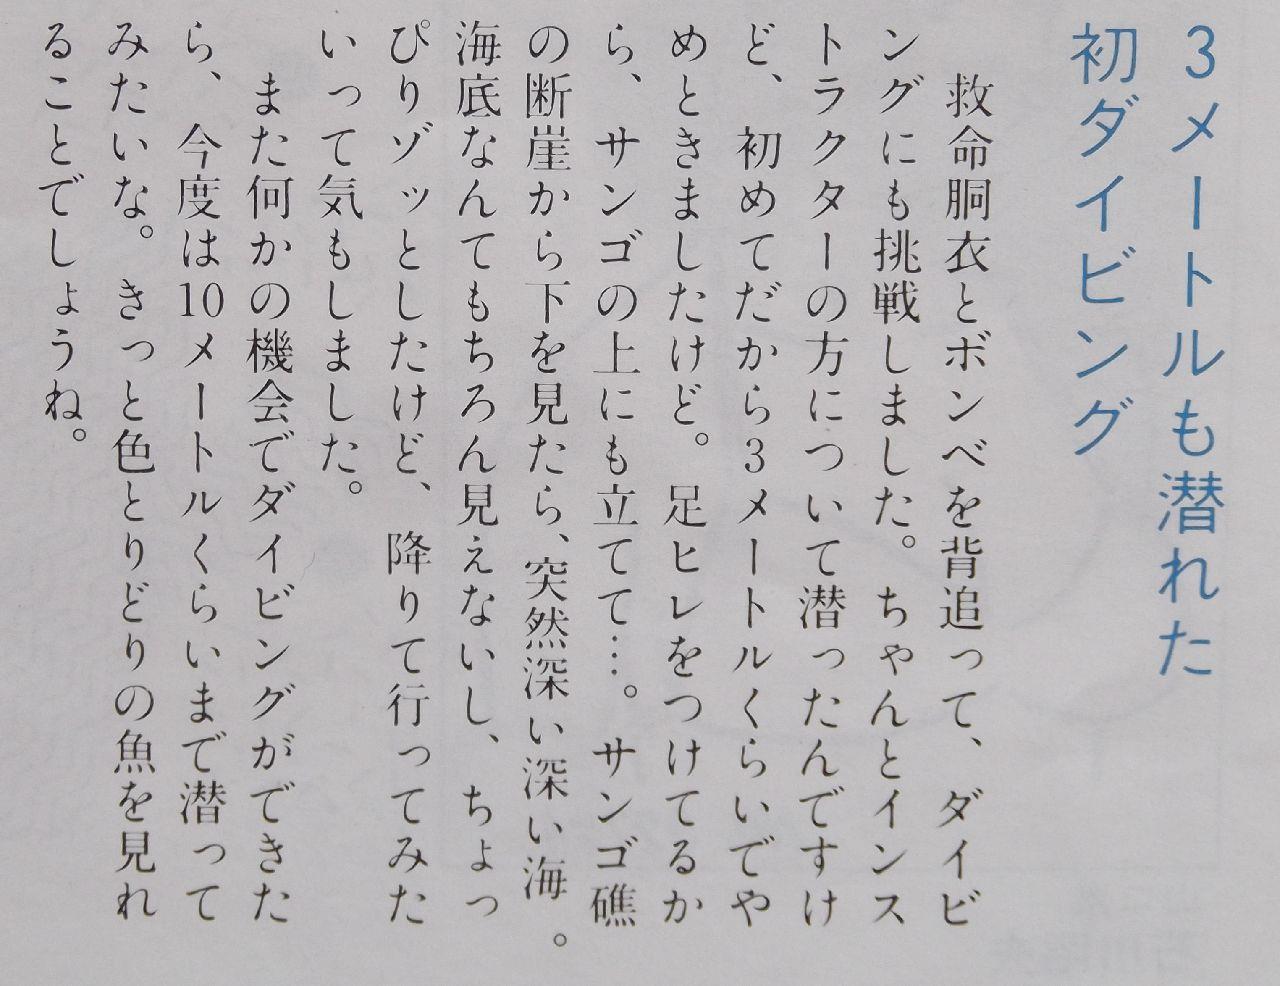 3メートルも潜れた
初ダイビング
救命胴衣とボンベを背追って、ダイビ
ングにも挑戦しました。ちゃんとインス
トラクターの方について潜ったんですけ
ど、初めてだから3メートルくらいでや
めときましたけど。足ヒレをつけてるか
ら、サンゴの上にも立てて…。サンゴ礁
の断崖から下を見たら、突然深い深い海。
海底なんてもちろん見えないし、ちょっ
ぴりゾッとしたけど、降りて行ってみた
いって気もしました。
また何かの機会でダイビングができた
ら、今度は10メートルくらいまで潜って
みたいな。きっと色とりどりの魚を見れ
ることでしょうね。